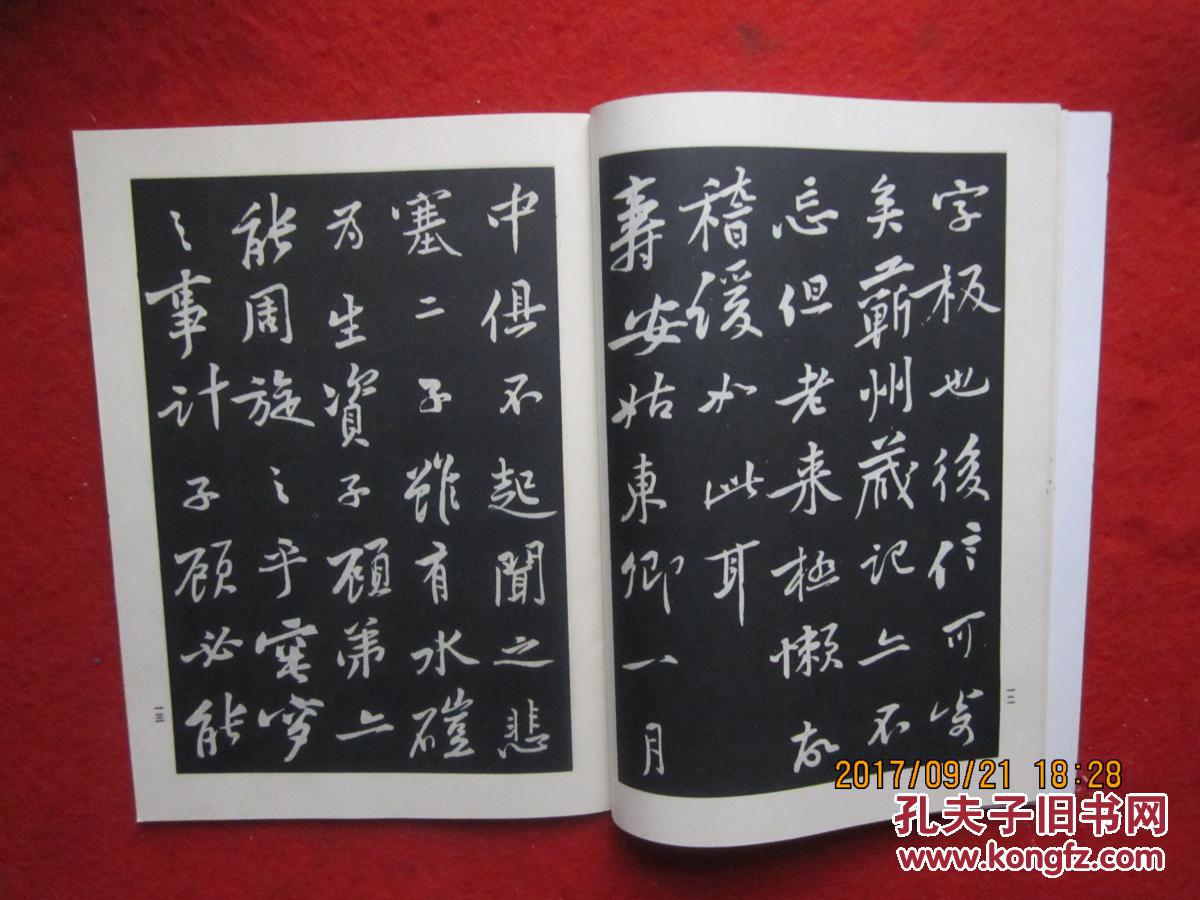 字板也後信可寄
矣蘄州歲記亦不
忘但老来極懶故
稽缓如此耳
壽安姑東卿一月
一三
中俱不起聞之悲
塞二子雖有水磑
为生資子顾弟亦
能周旋之乎窀穸
之事计子顾必能
一四
2017/09/21 18:28
孔夫子旧书网
www.kongfz.com